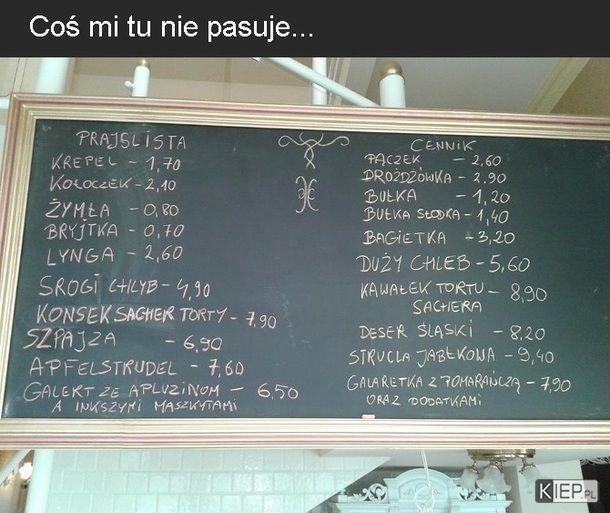 Coś mi tu nie pasuje...
PRAJSLISTA
KREPEL - 1,70
KOŁOCZEK - 2,10
ŻYMŁA - 0,80
BRYJTKA - 0,70
LYNGA - 2,60
SROGI CHLYB - 4,90
KONSEK SACHER TORTY - 7,90
SZPAJZA - 6,90
APFELSTRUDEL - 7,60
GALERT ZE APLUZINOM - 6,50
A INKSZYMI MASZKYTAMI
CENNIK
PĄCZEK - 2,60
DROŻDŻÓWKA - 2,90
BUŁKA - 1,20
BUŁKA SŁODKA - 1,40
BAGIETKA - 3,20
DUŻY CHLEB - 5,60
KAWAŁEK TORTU - 8,90
SACHERA
DESER ŚLĄSKI - 8,20
STRUCLA JABŁKOWA - 9,40
GALARETKA Z POMARAŃCZĄ - 7,90
ORAZ DODATKAMI
KIEP.PL